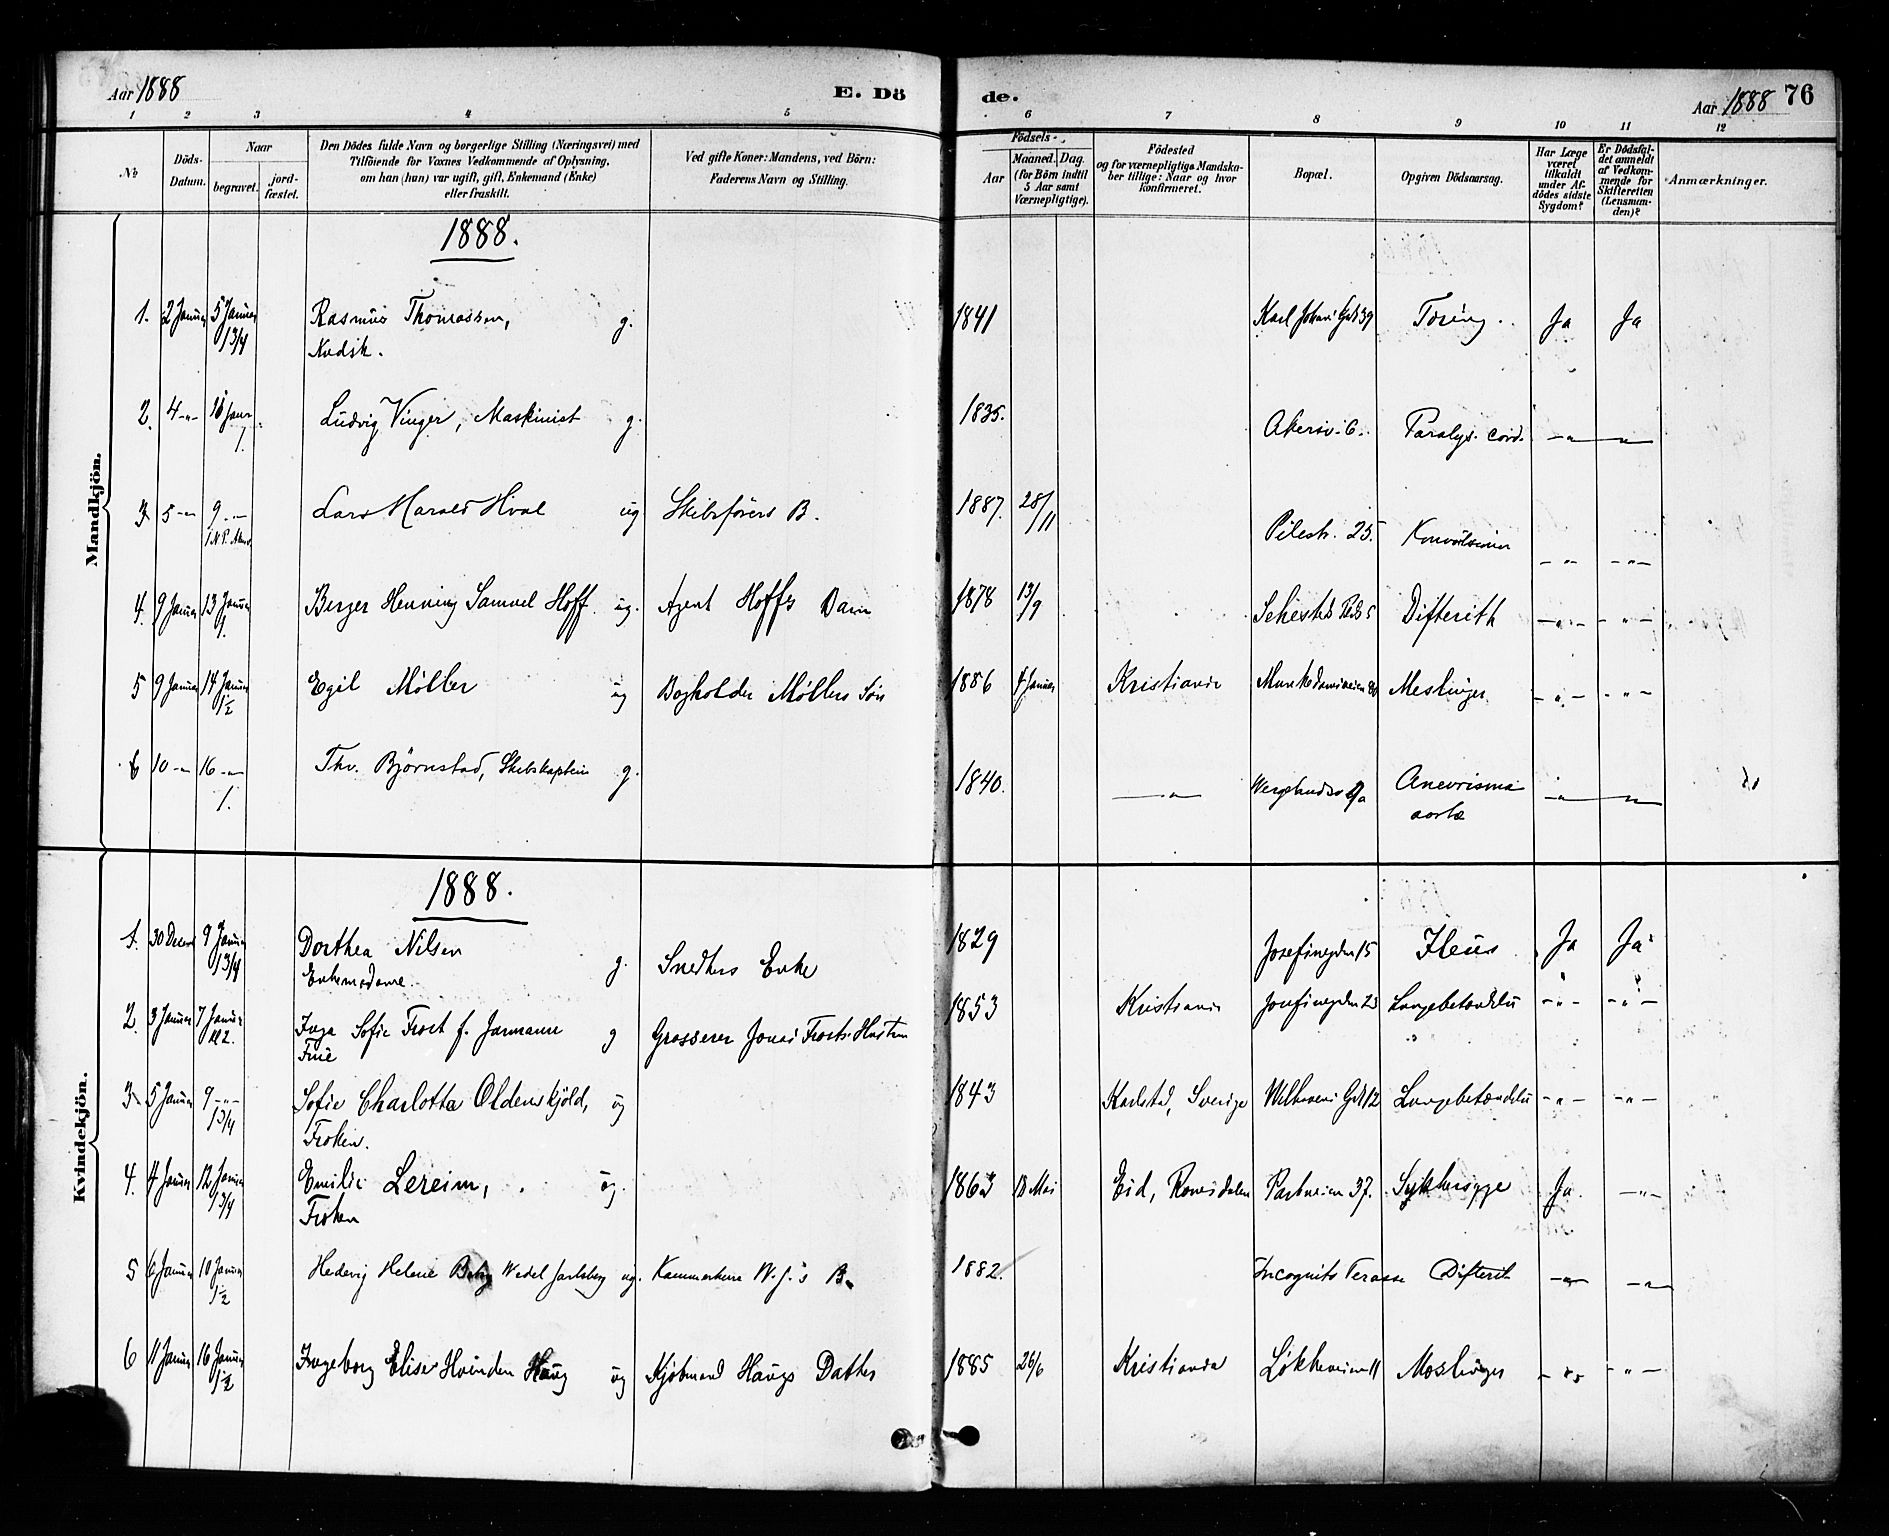 Aar 1888 E. Dö de. Aar 1888 76
1 2 3 4 5 6 7 8 9 10 11 12
No
Döds-Datum.
Naar
begravet.
jord-fæstet.
Den Dödes fulde Navn og borgerlige Stilling (Næringsvei) med
Tilföiende for Voxnes Vedkommende af Oplysning,
om han (hun) var ugift, gift, Enkemand (Enke)
eller fraskilt.
Ved gifte Koner: Mandens, ved Börn:
Faderens Navn og Stilling.
Födsels-
Aar
Maaned. Dag.
(for Börn indtil
5 Aar samt
Værnepligtige).
Födested
og for værnepligtige Mandska-
ber tillige: Naar og hvor
konfirmeret.
Bopæl.
Opgiven Dödsaarsag.
Har Læge
været
tilkaldt
under Af-
dödes sidste
Sygdom?
Er Dödsfal-
det anmeldt
af Vedkom-
mende for
Skifteretten
(Lensman-
den)?
Anmærkninger.
Mandkjön.
1888.
1. 2 Januar 5 Januar Rasmus Thomassen, g. 1841 Karl Johans Gd 39 Tæring Ja Ja
13/4
2. 4 -"- Ludvig Vinger, Maskinist g. 1835. Akersv. 6. Paralys. cord. -"- -"-
1.
3 5 -"- 9 -"- Lars Harald Hval ug Skibsförers B. 1887. 28/11 Pilestr. 25. Konvulsioner -"- -"-
4. 9 Januar 13 Januar Berger Henning Samuel Hoff. ug. Agent Hoffs Barn 1878 13/9 Sehesteds Plds 5 Difterith -"- -"-
1.
5 9 Januar 14 Januar Egil Møller ug Bogholder Møllers Sön 1886 4 Januar Kristiania Munkedamsveien Meslinger -"- -"-
1½
6 10 -"- 16 -"- Thv. Bjørnstad, Skibskaptein g. 1840. -"- Anevrisma -"- -"-
1. aortæ
Kvindekjön.
1888.
1. 30 Decem 9 Januar Dorthea Nilsen g. Snedkers Enke 1829 Josefinegden 15 Ileus Ja Ja
13/4 Enkemadame.
2. 3 Januar 7 Januar Inga Sofie Frost f. Jarmann g Grosserer Jonas Frosts Hustru 1853 Kristiania Josefinegden 23 Lungebetændelse -"- -"-
Kl 2. Frue
3 5 Januar 9 -"- Sofie Charlotta Oldenskjöld, ug 1843 Karlstad, Sverige Welhavens Gd 12 Lungebetændelse -"- -"-
13/4 Froken.
4. 4 Januar 12 Januar Emilie Lereim, ug. 1863 13 Mai Eid, Romsdalen Parkveien 37. Ja -"-
13/4 Froken
5 6 Januar 10 Januar Hedevig Helene Wedel Jarlsberg ug. Kammerherre W. J.'s B. 1882. Incognito Terasse Difterit -"- -"-
1½
6 11 Januar 16 Januar Ingeborg Elise Hvinden Haug ug Kjöbmand Haugs Datter 1885 26/6 Kristiania Løkkeveien 11 Meslinger -"- -"-
1½